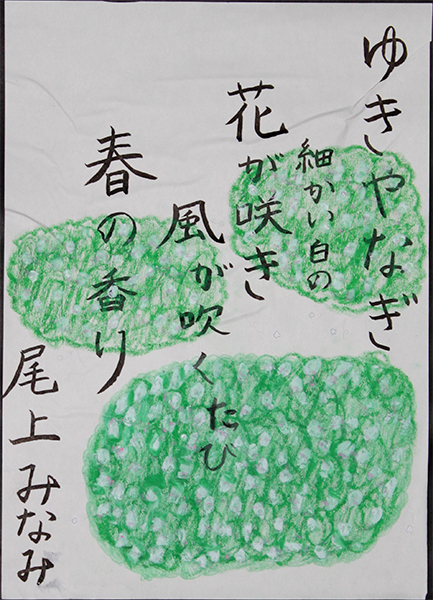 ゆきやなぎ
細かい白の
花が咲き
風が吹くたび
春の香り
尾上みなみ